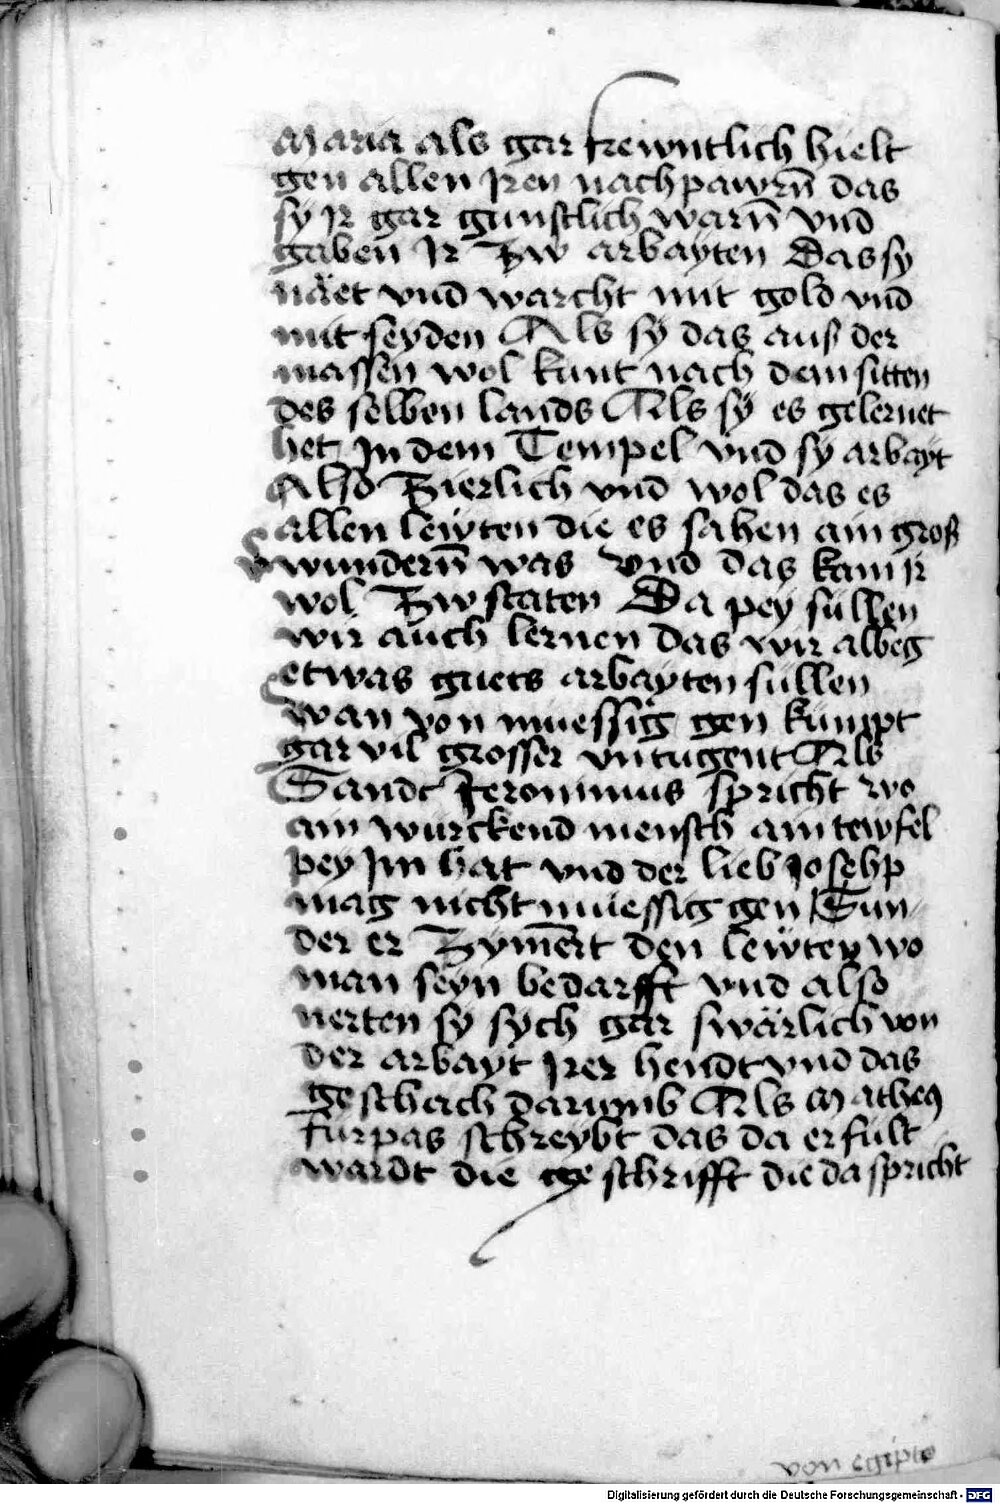 Maria als gar frewntlich hielt
gen allen Iren nachpawrn̄ das
sy Ir gar gunstlich warn̄ vnd
gaben Ir Zw arbayten Das sy
näet vnd warcht mit gold vnd
mit seyden Als sy das auß der
massen wol kunt nach dem sitten
des selben lands Als sy es gelernet
het In dem Tempel vnd sy arbayt
Also Zierlich vnd wol das es
allen lewten die es sahen ain groß
wundern̄ was vnd das kam ir
wol Zw staten Da pey süllen
wir auch lernen das wir albeg
etwas guets arbayten süllen
wan von muessig gen kumpt
gar vil grosser vntugent Als
Sandt Jeronimus spricht wo
ain würckend mensch ain tewfel
pey Im hat vnd der lieb Josehp
mag nicht muessig gen Sun
der er Zymert den lewten wo
man seyn bedarfft vnd also
nerten sy sych gar swärlich von
der arbayt Irer hendt vnd das
geschach darumb Als Matheus
fürpas schreybt das da erfult
wardt die geschrifft die da spricht
von egipto
Digitalisierung gefördert durch die Deutsche Forschungsgemeinschaft - DFG